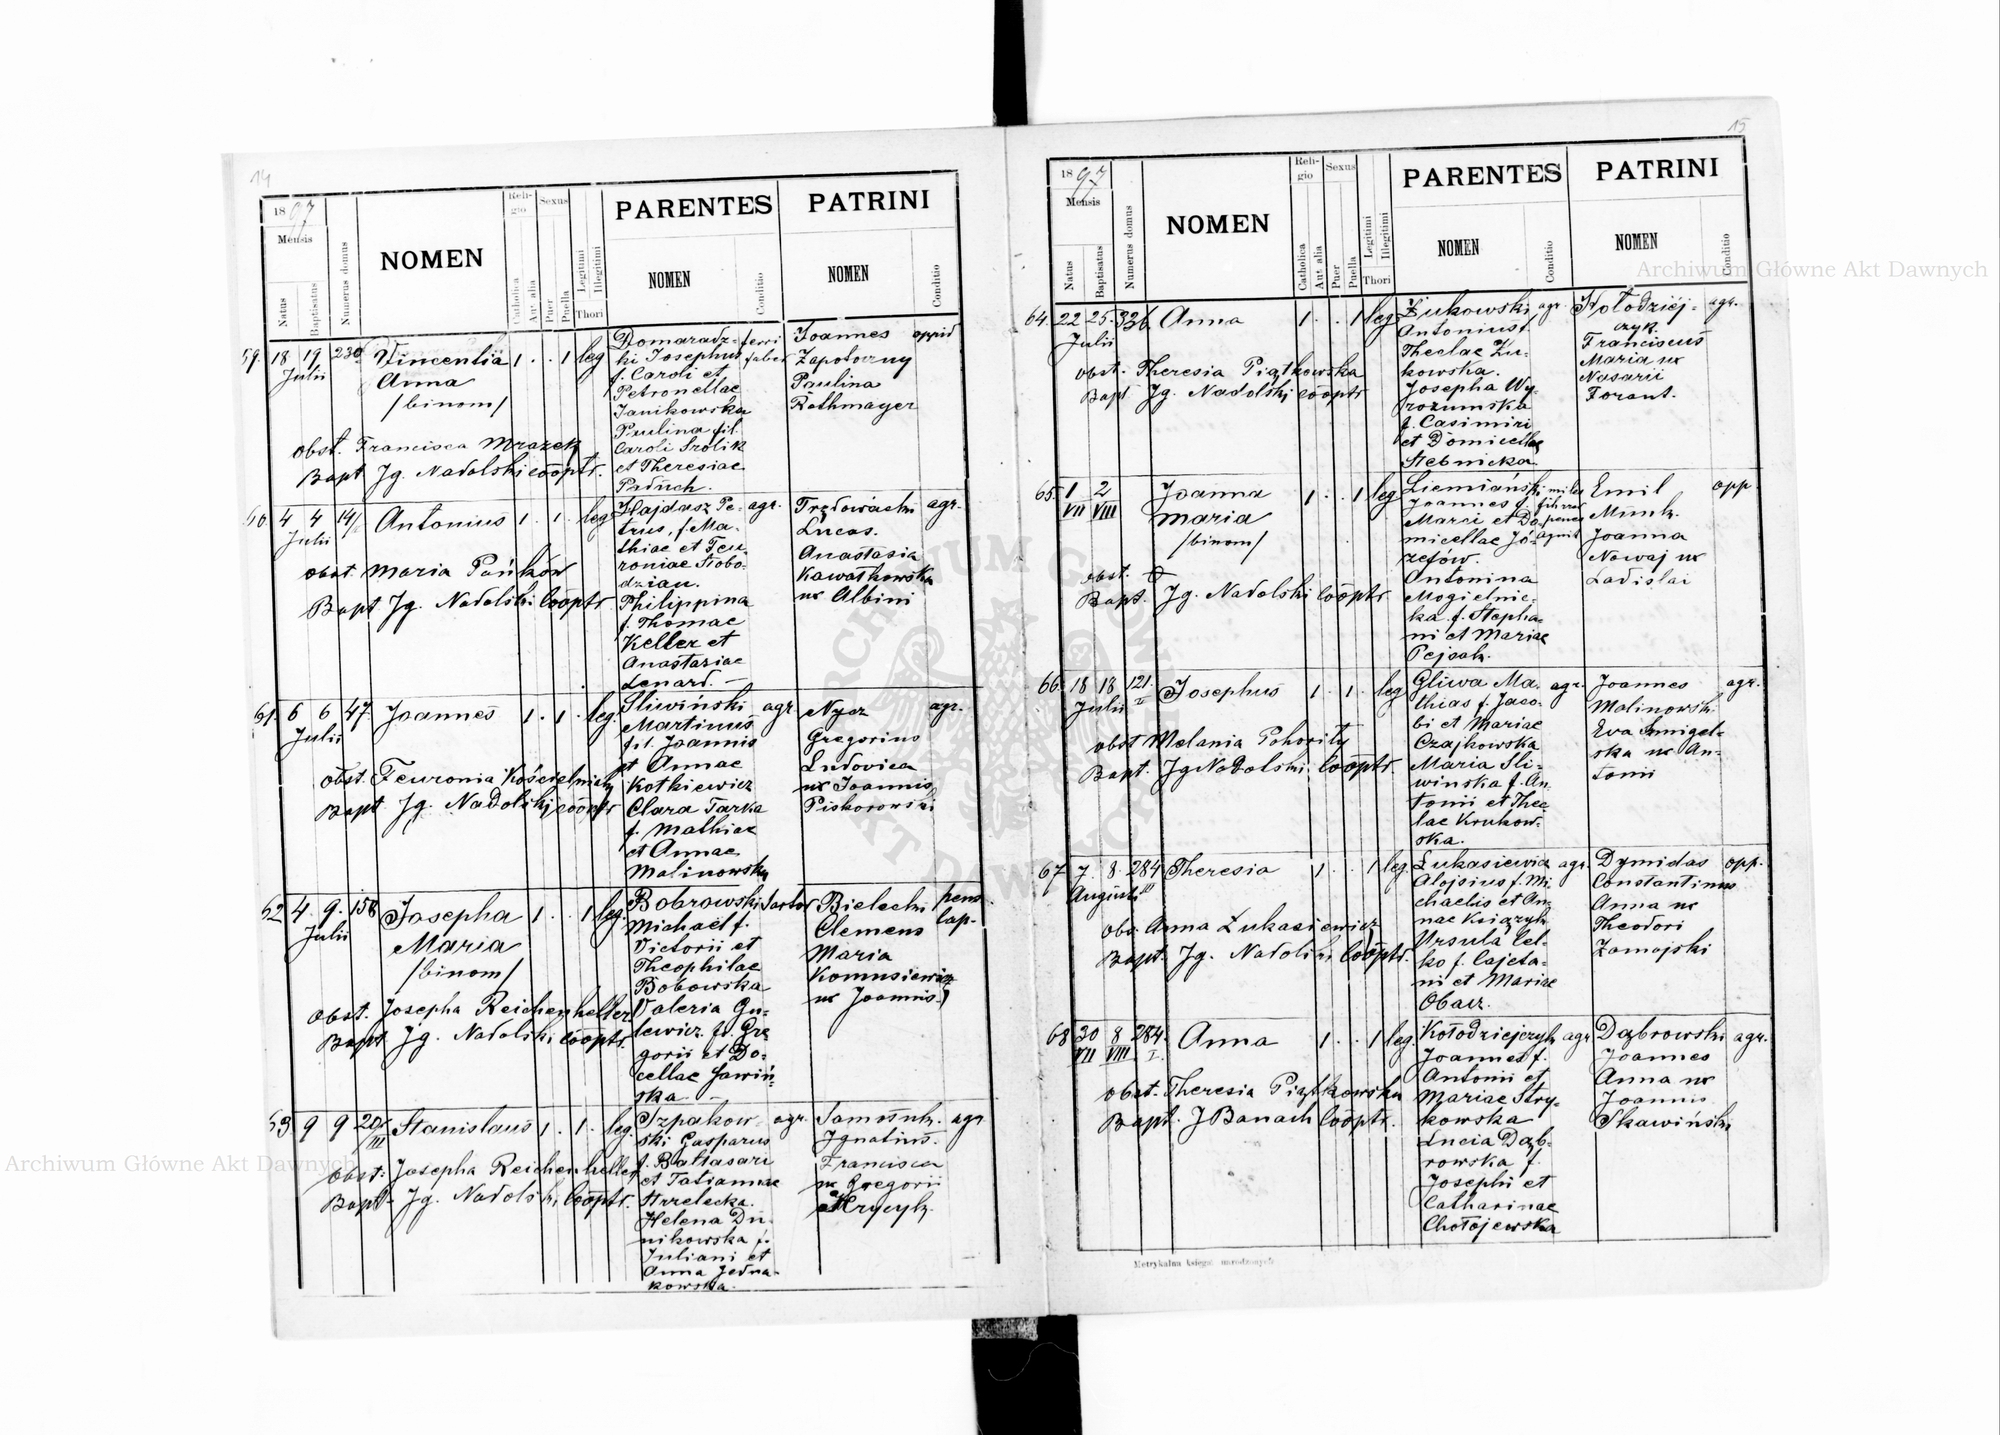 14
1897
Mensis
Natus
Baptisatus
Numerus domus
NOMEN
Religio
Catholica
Aut alia
Sexus
Puer
Puella
Legitimi
Illegitimi
Thori
PARENTES
NOMEN
Conditio
PATRINI
NOMEN
Conditio
59. 18 19 230
Julii
Vincentia 1 . . 1 leg
Anna
/binom/
obst. Francisca Mrazek
Bapt Jg. Nadolski cooptr.
Domaradz- ferri
ki Josephus faber
f. Caroli et
Petronellae
Janikowska
Paulina fil.
Caroli Srolik
et Theresiae
Joannes oppid
Zapotoczny
Paulina
Rothmayer
60 4 4 14/
Julii
Antonius 1 . 1 . leg
obst. Maria Pańków
Bapt Jg. Nadolski Cooptr
Hajdasz Pe- agr.
trus, f. Ma-
thiae et Feu-
roniae Słobo-
dzian.
Philippina
f. Thomae
Keller et
Anastasiae
Lenard. —
Trędowacki agr.
Lucas.
Anastasia
Kawałkowska
ux Albini
61. 6 6 47.
Julii
Joannes 1 . 1 . leg.
obst. Feuronia Kościelniak
Bapt Jg. Nadolski cooptr
Sliwiński agr.
Martinus
fil. Joannis
et Annae
Kotkiewicz
Clara Tarka
f. Mathiae
et Annae
Malinowska
Nycz agr.
Gregorius
Ludovica
ux Joannis
Piskorowski
62 4. 9. 158
Julii
Josepha 1 . . 1 leg.
Maria
/binom/
obst. Josepha Reichenheller
Bapt Jg. Nadolski cooptr.
Bobrowski Sartor
Michael f.
Victorii et
Theophilae
Bobowska
Valeria Gu-
lewicz f. Gre
gorii et Do-
cellae Sawiń-
ska —
Bielecki pens
Clemens cap.
Maria
Komusiewicz
ux Joannis.
63 9 9 20
III
Stanislaus 1 . 1 . leg.
obst. Josepha Reichenheller
Bapt. Jg. Nadolski Cooptr.
Szpakow- agr.
ski Gasparus
f. Baltasari
et Tatiannae
Strzelecka.
Helena Du-
nikowska f.
Juliani et
Anna Jedna-
kowska.
Samosnik. agr
Ignatius.
Francisca
ux Gregorii
15
1897
Mensis
Natus
Baptisatus
Numerus domus
NOMEN
Religio
Catholica
Aut alia
Sexus
Puer
Puella
Legitimi
Illegitimi
Thori
PARENTES
NOMEN
Conditio
PATRINI
NOMEN
Conditio
64. 22 25. 336
Julii
Anna 1 . . 1 leg
obst. Theresia Piątkowska
Bapt Jg. Nadolski cooptr
Żukowski agr.
Antonius f.
Theclae Żu-
kowska.
Josepha Wy-
rozumska
f. Casimiri
et Domicellae
Stebnicka.
Hołodziej- agr.
czyk.
Franciscus
Maria ux
Nasarii
Forant.
65. 1 2
VII VIII
Joanna 1 . . 1 leg
Maria
/binom/
obst.
Bapt. Jg. Nadolski Cooptr.
Ziemiański miles
Joannes f.
Marci et Do
micellae Jó-
zefów.
Antonina
Mogielnic-
ka f. Stepha-
ni et Mariae
Pejsak.
Emil opp
Munk.
Joanna
Nowaj ux
Ladislai
66. 18 18 121.
Julii I
Josephus 1 . 1 . leg
obst Melania Pohorily
Bapt. Jg Nadolski Cooptr.
Gliwa Ma- agr.
thias f. Jaco-
bi et Mariae
Czajkowska
Maria Sli-
winska f. An
tonii et The
lae Krukow-
ska.
Joannes agr.
Malinowski
Eva Smigel-
ska ux An-
tonii
67 7. 8. 284
Augusti III
Theresia 1 . . 1 leg.
obs. Anna Łukasiewicz
Bapt. Jg. Nadolski Cooptr.
Łukasiewicz agr.
Alojsius f. Mi
chaelis et An-
nae Książyk
Ursula Cel-
ko f. Cajeta-
ni et Mariae
Obacz.
Dymidas opp.
Constantinus
Anna ux
Theodori
Zamojski
68 30 8 284.
VII VIII I.
Anna 1 . . 1 leg.
obst. Theresia Piątkowska
Bapt. J Banach Cooptr.
Kołodziejczyk agr
Joannes f.
Antonii et
Mariae Stry-
kowska
Lucia Dąb-
rowska f.
Josephi et
Catharinae
Chołojewska
Dąbrowski agr.
Joannes
Anna ux
Joannis
Skawiński
Metrykalna księga narodzonych
Archiwum Główne Akt Dawnych
Archiwum Główne Akt Dawnych
ARCHIWUM GŁÓWNE AKT DAWNYCH